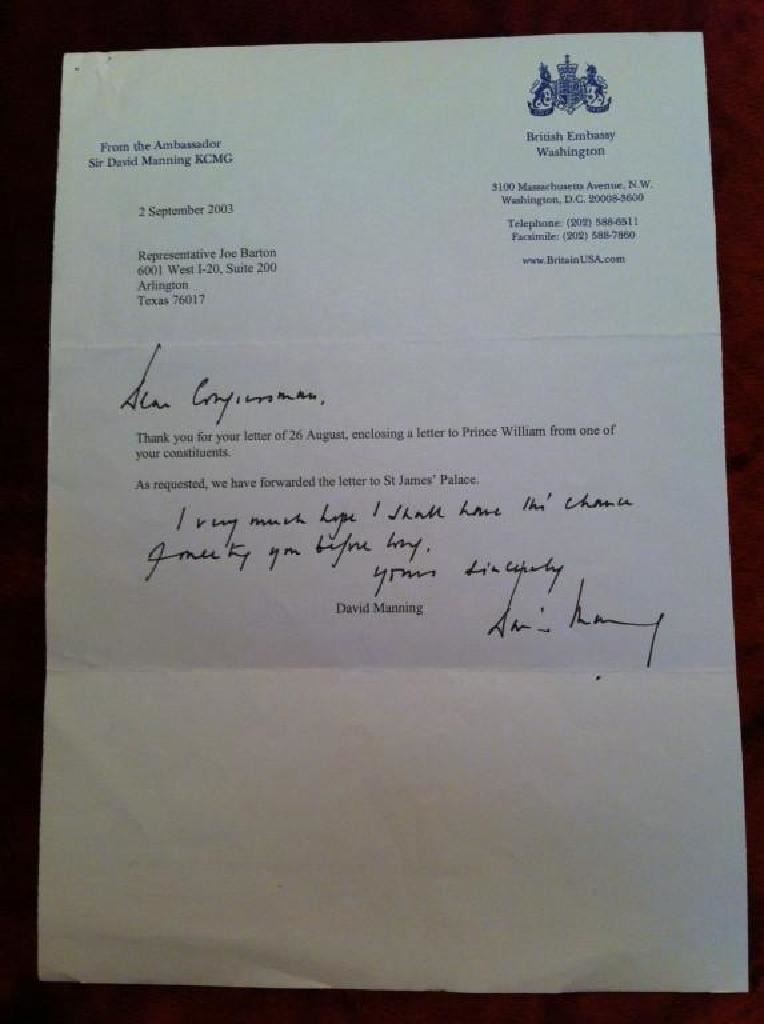 From the Ambassador
Sir David Manning KCMG
British Embassy
Washington
3100 Massachusetts Avenue, N.W.
Washington, D.C. 20008-3600
Telephone: (202) 588-6511
Facsimile: (202) 588-7850
www.BritainUSA.com
2 September 2003
Representative Joe Barton
6001 West I-20, Suite 200
Arlington
Texas 76017
Dear Congressman,
Thank you for your letter of 26 August, enclosing a letter to Prince William from one of
your constituents.
As requested, we have forwarded the letter to St James' Palace.
I very much hope I shall have the chance
of meeting you before long.
Yours sincerely
David Manning
David Manning